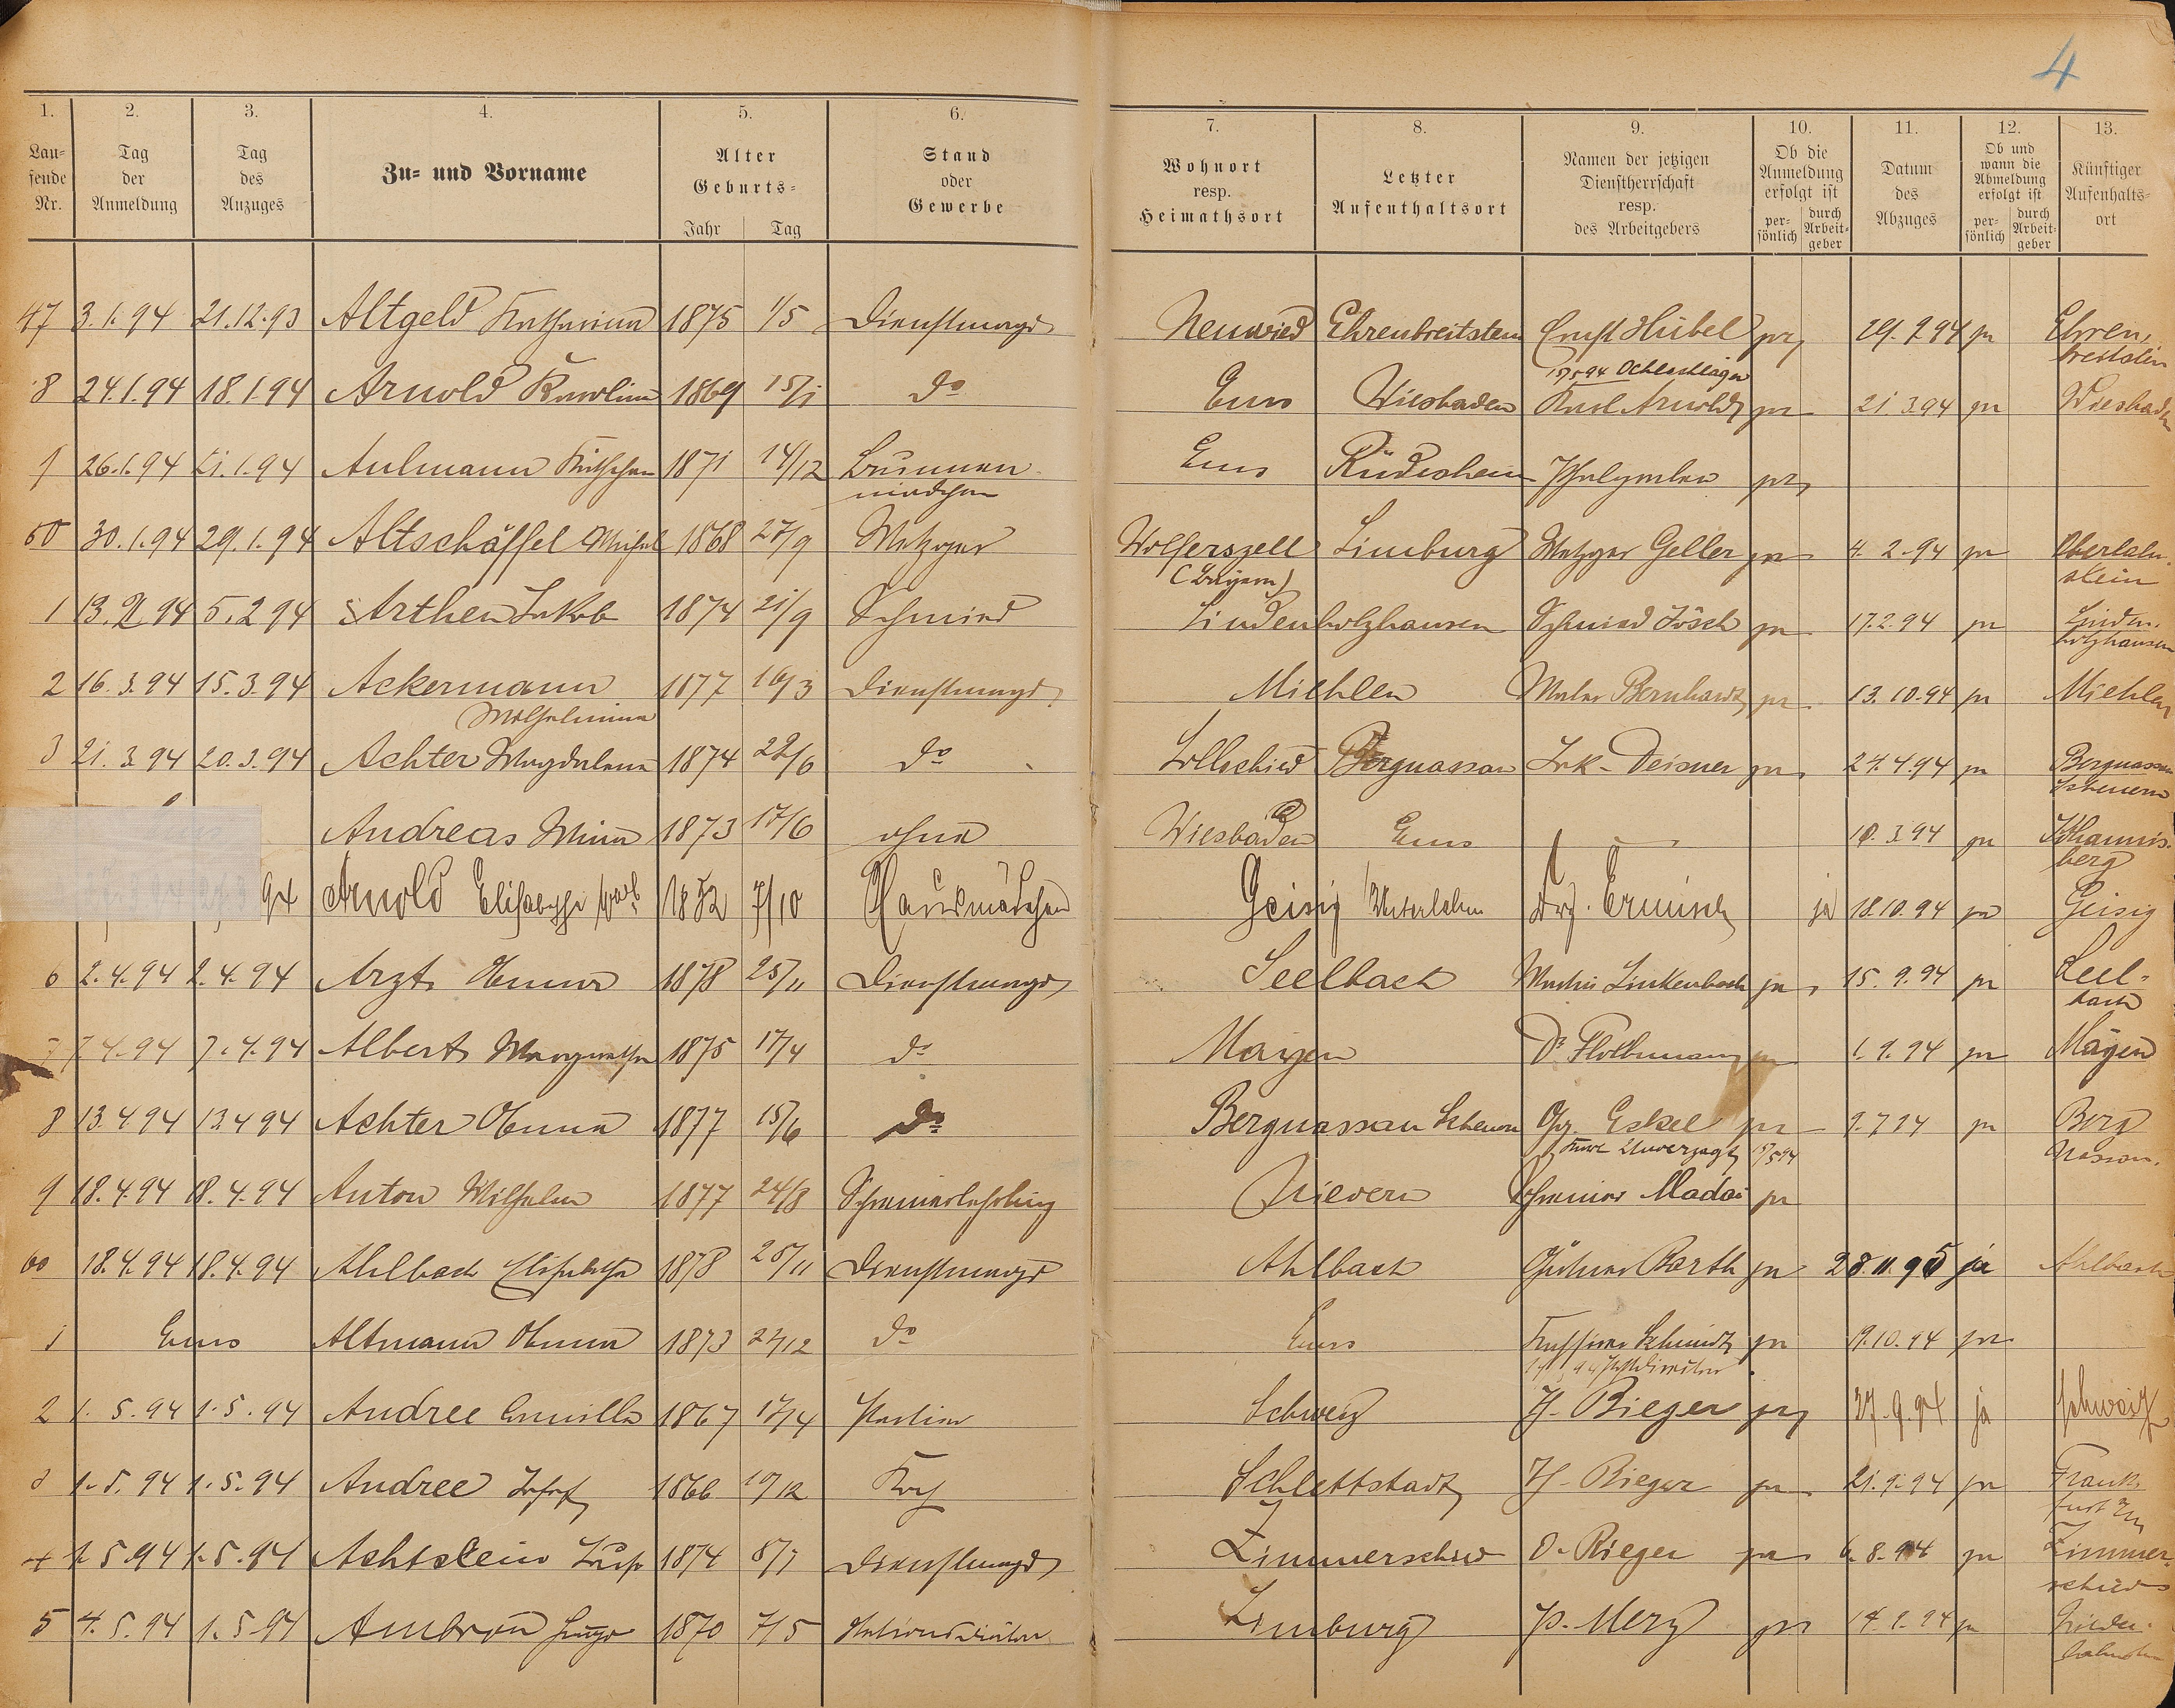 4
1. 2. 3. 4. 5. 6. 7. 8. 9. 10. 11. 12. 13.
Lau-
fende
Nr.
Tag
der
Anmeldung
Tag
des
Anzuges
Zu- und Vorname
Alter
Geburts-
Jahr Tag
Stand
oder
Gewerbe
Wohnort
resp.
Heimathsort
Letzter
Aufenthaltsort
Namen der jetzigen
Dienstherrschaft
resp.
des Arbeitgebers
Ob die
Anmeldung
erfolgt ist
per-
sönlich
durch
Arbeit-
geber
Datum
des
Abzuges
Ob und
wann die
Abmeldung
erfolgt ist
per-
sönlich
durch
Arbeit-
geber
Künftiger
Aufenthalts-
ort
47 3.1.94 21.12.93 Altgeld Katharina 1875 1/5 Dienstmagd Neuwied Ehrenbreitstein Ernst Hübel ja 29.9.94 ja Ehren-
breitstein
8 24.1.94 18.1.94 Arnold Karolina 1869 15/1 do Ems Wiesbaden Karl Arnold ja 21.3.94 ja Wiesbaden
9 26.1.94 21.1.94 Aulmann Käthchen 1871 14/12 Brunnen-
mädchen Ems Rüdesheim ja
50 30.1.94 29.1.94 Altschäffel Michel 1868 27/9 Metzger Wolferszell
(Bayern) Limburg Metzger Geller ja 4.2.94 ja Oberlahn-
stein
1 13.2.94 5.2.94 Arthen Jakob 1874 21/9 Schmied Lindenholzhausen Schmied Jösch ja 17.2.94 ja Linden-
holzhausen
2 16.3.94 15.3.94 Ackermann
Wilhelmina 1877 16/3 Dienstmagd Miehlen Maler Bernhardt ja 13.10.94 ja Miehlen
3 21.3.94 20.3.94 Achter Magdalena 1874 22/6 do Lollschied Bergnassau Jak. Deisner ja 24.4.94 ja Bergnassau
Scheuern
Andreas Mina 1873 17/6 ohne Wiesbaden Ems 10.3.94 ja Johannis-
berg
94 Arnold Elisabethe 1872 7/10 Hausmädchen Geisig Ermisch ja 18.10.94 ja Geisig
6 2.4.94 2.4.94 Arzt Anna 1878 25/11 Dienstmagd Seelbach Linkenbach ja 15.9.94 ja Seel-
bach
7 7.4.94 7.4.94 Albert Margaretha 1875 17/4 do Mayen Dr ja 1.9.94 ja Mayen
8 13.4.94 13.4.94 Achter Anna 1877 15/6 do Bergnassau Scheuern Eskel ja 9.7.94 ja Berg
Nassau.
Unverzagt 15/5 94
9 18.4.94 18.4.94 Anton Wilhelm 1877 24/8 Schreinerlehrling Nievern Schreiner Madai ja
60 18.4.94 18.4.94 Ahlbach Elisabetha 1878 25/11 Dienstmagd Ahlbach Gärtner Barth ja 28.11.95 ja Ahlbach
1 Ems Altmann Anna 1873 27/12 do Ems Schmidt ja 19.10.94 ja
2 1.5.94 1.5.94 Andree 1867 17/4 Schweiz H. Rieger ja 27.9.94 ja Schweiz
3 1.5.94 1.5.94 Andree Josef 1866 19/12 Koch Schlettstadt H. Rieger ja 21.9.94 ja Frank-
furt
4 1.5.94 1.5.94 Achtstein 1874 8/7 Dienstmagd Zimmerschied O. Rieger ja 6.8.94 ja Zimmer-
schied
5 4.5.94 1.5.94 Ambron Hugo 1870 7/5 Limburg P. Merz ja 14.9.94 ja